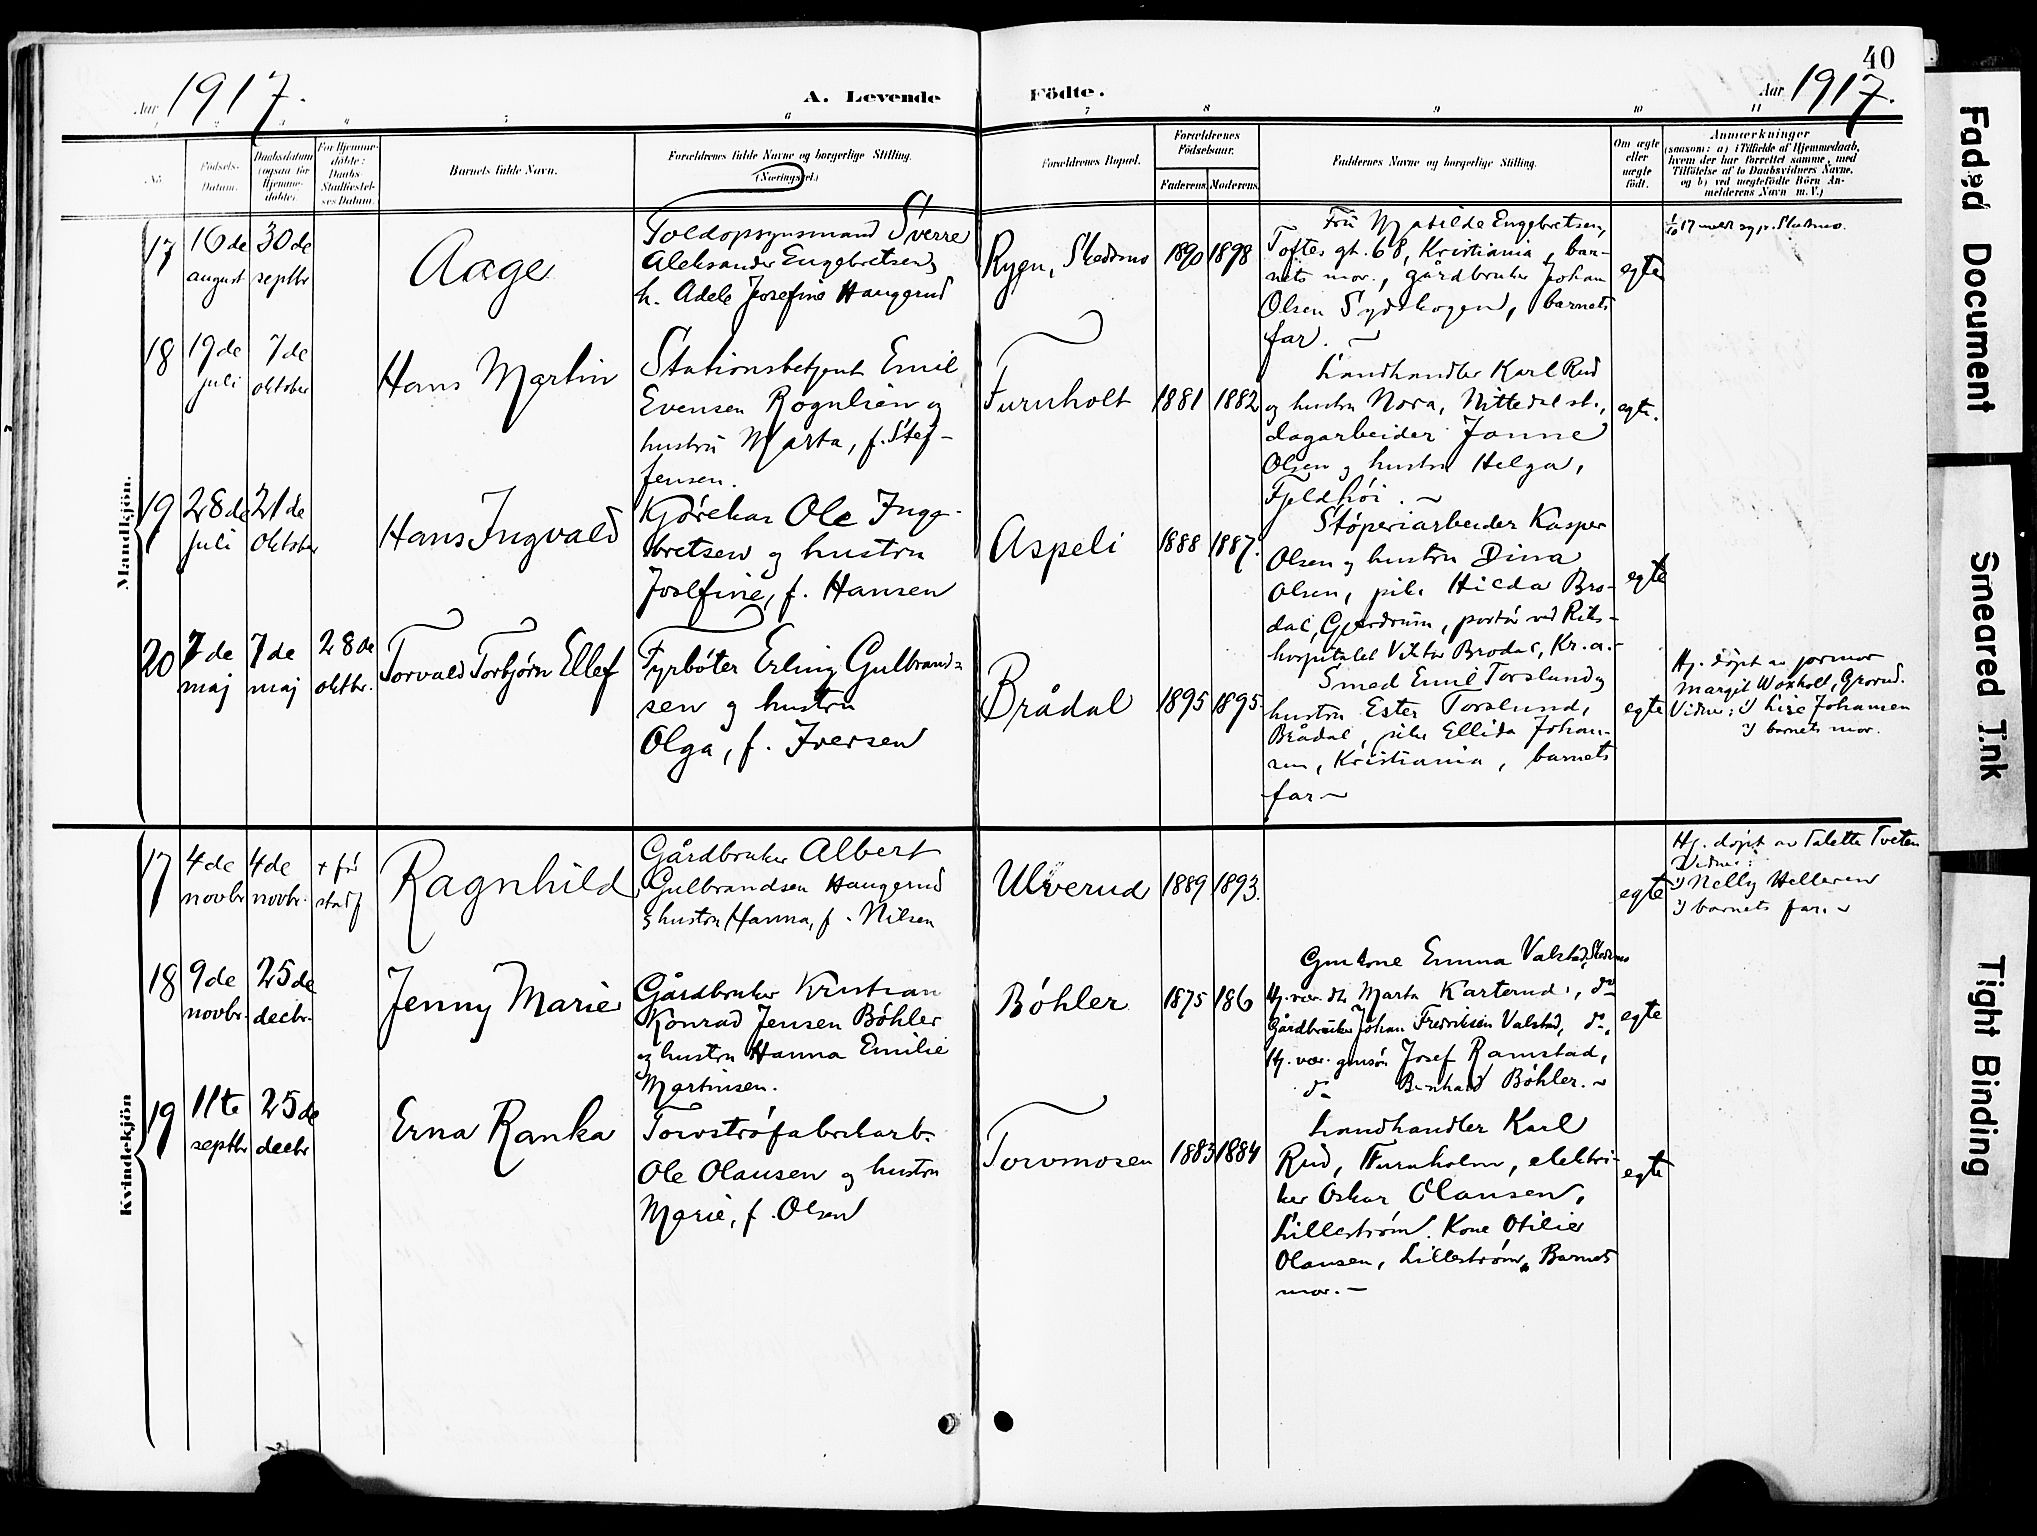 40
Aar 1917.
A. Levende Födte.
Aar 1917.
1 2 3 4 5 6 7 8 9 10 11
No.
Födsels-
Datum.
Daabsdatum
(ogsaa for
Hjemme-
döbte).
For Hjemme-
döbte:
Daabs-
Stadfæstel-
ses Datum.
Barnets fulde Navn.
Forældrenes fulde Navne og borgerlige Stilling.
(Næringsvei.)
Forældrenes Bopæl.
Forældrenes
Födselsaar.
Faderens. Moderens.
Faddernes Navne og borgerlige Stilling.
Om ægte
eller
uægte
født.
Anmærkninger
(saasom: a) i Tilfælde af Hjemmedaab,
hvem der har forrettet samme, med
Tilföielse af to Daabsvidners Navne,
og b) ved uægtefödte Börn An-
melderens Navn m. V.)
Mandkjön.
17
16de
august
30de
septbr
Aage
Toldopsynsmand Sverre
Aleksander Engebretsen
h. Adele Josefine Haugerud
Rygn, Skedsmo
1890
1898
Fru Matilde Engebretsen,
Toftes gt. 68, Kristiania, bar-
nets mor, gårdbruker Johan
Olsen Sydskogen, barnets
far.
egte
18
19de
juli
7de
oktober
Hans Martin
Stationsbetjent Emil
Evensen Rognlien og
hustru Marta, f. Stef-
fensen.
Furuholt
1881
1882
Landhandler Karl Rud
og hustru Nora, Nittedal st.,
dagarbeider Jonne
Olsen og hustru Helga,
Fjeldhøi.
egte.
19
28de
juli
21de
oktober
Hans Ingvald
Kjørekar Ole Inge-
bretsen og hustru
Josefine, f. Hansen
Aspeli
1888
1887.
Støperiarbeider Kasper
Olsen og hustru Dina
Olsen, pike Hilda Bro-
dal, Gjerdrum, portør ved Riks-
hospitalet Viktor Brodal, Kr.a.
egte
20
7de
maj
7de
maj
28de
oktbr.
Torvald Torbjørn Ellef
Fyrbøter Erling Gulbrand-
sen og hustru
Olga, f. Iversen
Brådal
1895
1895.
Smed Emil Torslund og
hustru Ester Torslund,
Brådal, pike Ellida Johan-
sen, Kristiania, barnets
far
egte
Hj. døpt av jormor
Margit Woxholt, Grorud.
Vidner: 1) Lise Johansen
2) barnets mor.
Kvindekjön
17
4de
novbr
4de
novbr.
+ før
stadf
Ragnhild
Gårdbruker Albert
Gulbrandsen Haugerud
og hustru Hanna, f. Nilsen
Ulverud
1889
1893.
egte
Hj. døpt av Taletta Tveten
Vidner:
1) Nelly Helleren
2) barnets far.
18
9de
novbr.
25de
decbr.
Jenny Marie
Gårdbruker Kristian
Konrad Jensen Bøhler
og hustru Hanna Emilie
Martinsen.
Bøhler
1875
186
Gmkone Emma Valstad, Skedsmo
Hj. vær. dtr Marta Karterud, do
Gårdbruker Johan Fredriksen Valstad, do,
Hj. vær. gmsøn Josef Ramstad,
do Bernhard Bøhler.
egte
19
11te
septbr
25de
decbr
Erna Ranka
Torvstrøfabrikarb.
Ole Olausen og hustru
Marie, f. Olsen
Torvmosen
1883
1884
Landhandler Karl
Rud, Furuholm, elektri-
ker Oskar Olausen,
Lillestrøm. Kone Otilie
Olausen, Lillestrøm, Barnets
mor.
egte
Faded Document
Smeared Ink
Tight Binding